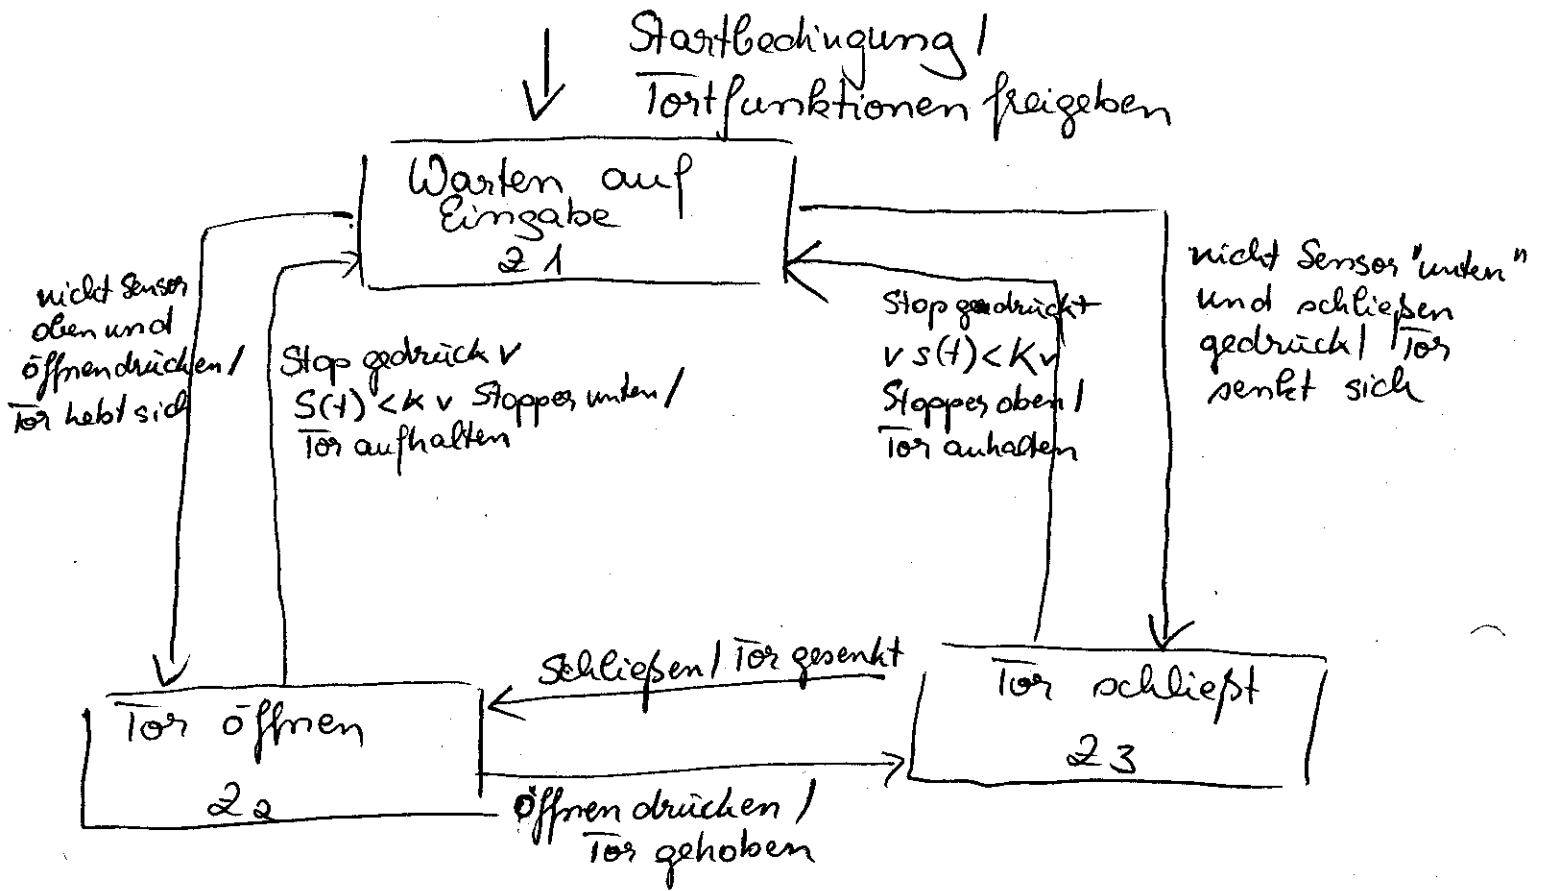 Startbedingung /
Tortfunktionen freigeben
Warten auf
Eingabe
Z 1
nicht Sensor
oben und
öffnen drücken /
Tor hebt sich
Stop gedrück v
S(t) < K v Stopper unten /
Tor aufhalten
Stop gedrückt
v s(t) < K v
Stopper oben /
Tor anhalten
nicht Sensor "unten"
und schließen
gedrück / Tor
senkt sich
Schließen / Tor gesenkt
Tor öffnen
Z 2
Tor schließt
Z 3
Öffnen drücken /
Tor gehoben